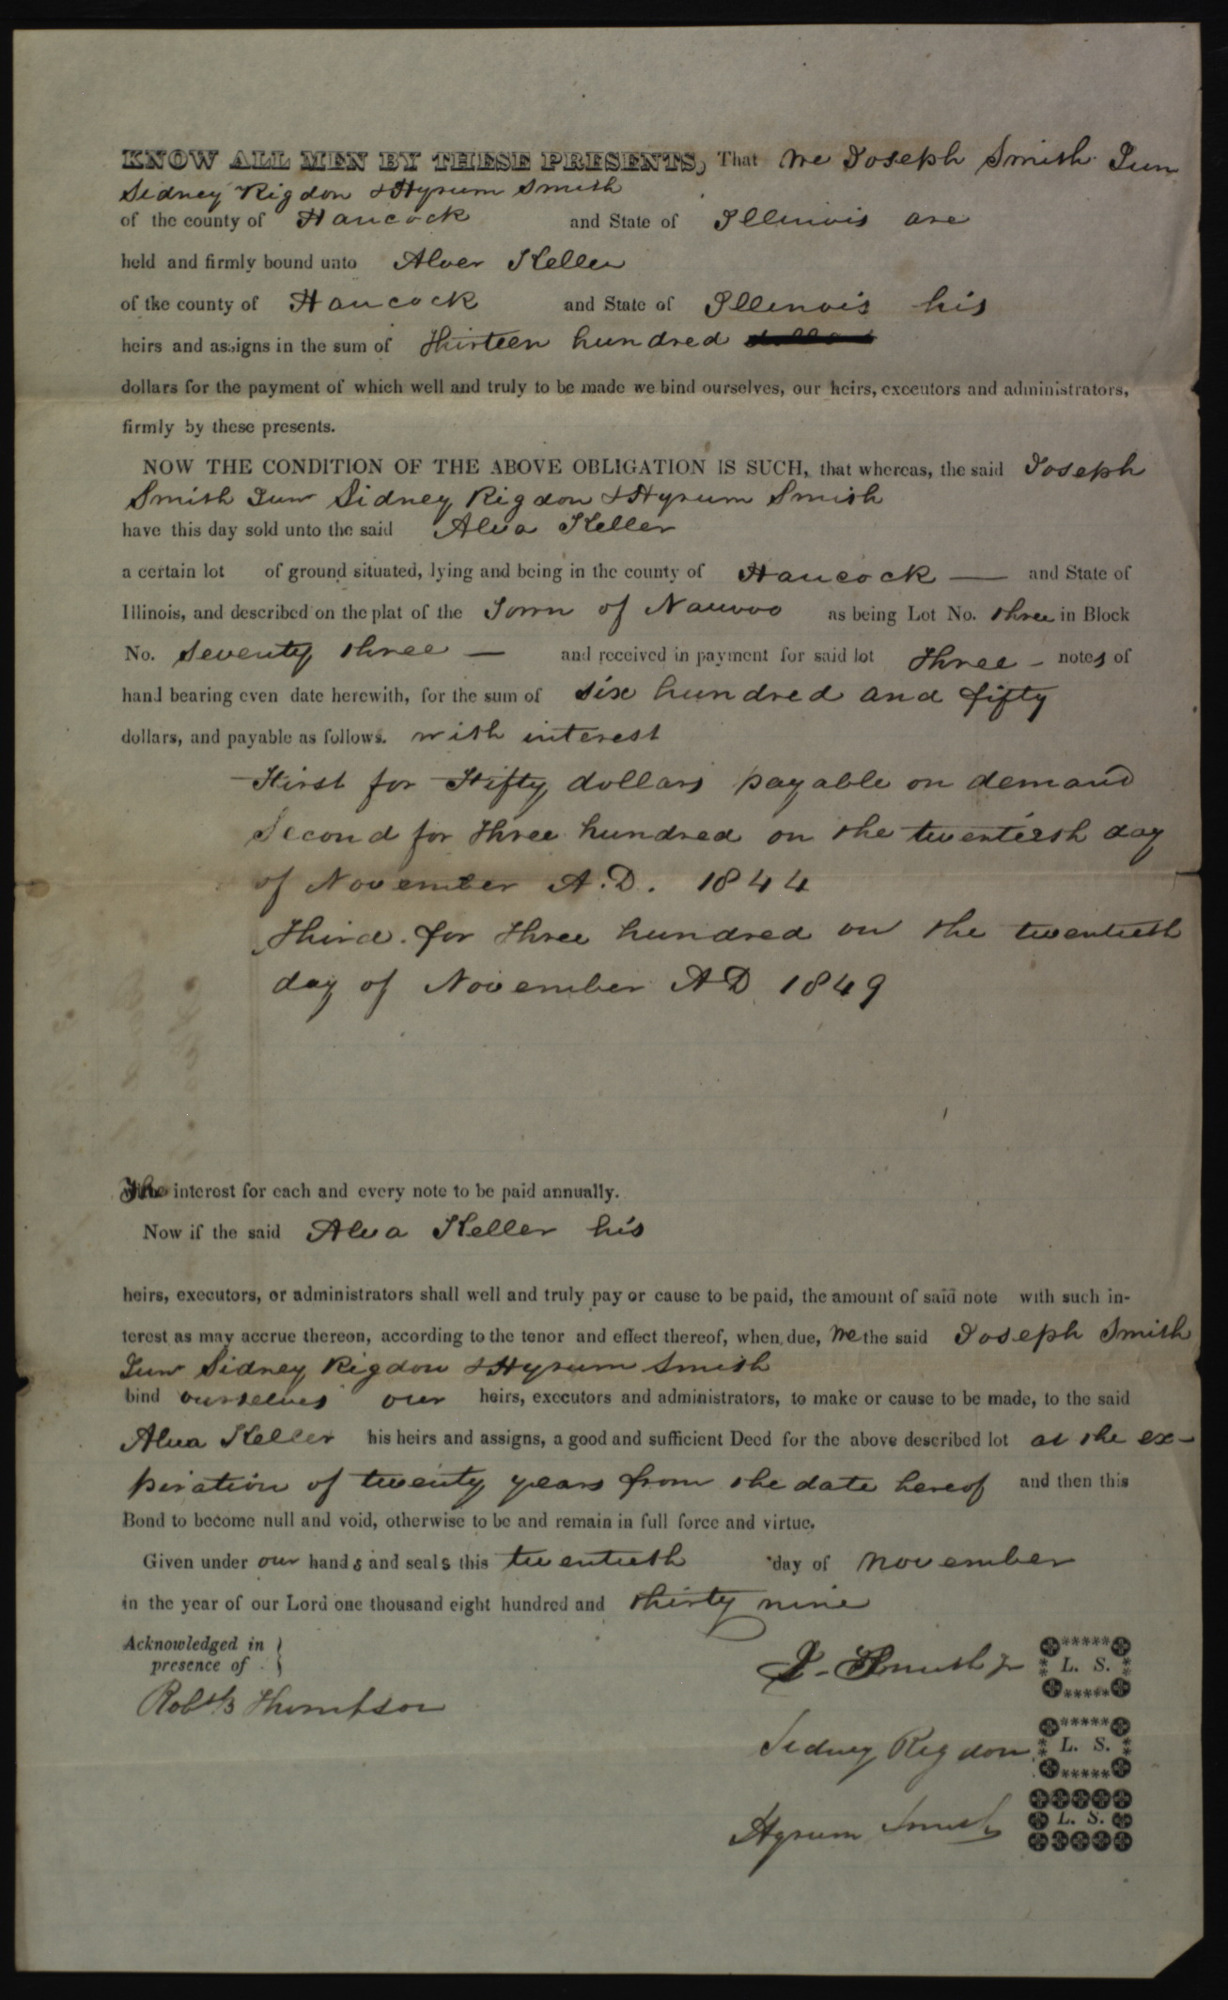 KNOW ALL MEN BY THESE PRESENTS, That we Joseph Smith Jun
Sidney Rigdon & Hyrum Smith
of the county of Hancock and State of Illinois are
held and firmly bound unto Alver Keller
of tke county of Hancock and State of Illinois his
heirs and assigns in the sum of Thirteen hundred
dollars for the payment of which well and truly to be made we bind ourselves, our heirs, executors and administrators,
firmly by these presents.
NOW THE CONDITION OF THE ABOVE OBLIGATION IS SUCH, that whereas, the said Joseph
Smith Jun Sidney Rigdon & Hyrum Smith
have this day sold unto the said Alva Keller
a certain lot of ground situated, lying and being in the county of Hancock — and State of
Illinois, and described on the plat of the Town of Nauvoo as being Lot No. three in Block
No. Seventy three — and received in payment for said lot three - notes of
hand bearing even date herewith, for the sum of six hundred and fifty
dollars, and payable as follows. with interest
First for Fifty dollars payable on demand
Second for three hundred on the twentieth day
of November A.D. 1844
Third. for three hundred on the twentieth
day of November AD 1849
The interest for each and every note to be paid annually.
Now if the said Alva Keller his
heirs, executors, or administrators shall well and truly pay or cause to be paid, the amount of said note with such in-
terest as may accrue thereon, according to the tenor and effect thereof, when due, we the said Joseph Smith
Jun Sidney Rigdon & Hyrum Smith
bind ourselves our heirs, executors and administrators, to make or cause to be made, to the said
Alva Keller his heirs and assigns, a good and sufficient Deed for the above described lot at the ex-
piration of twenty years from the date hereof and then this
Bond to become null and void, otherwise to be and remain in full force and virtue.
Given under our hands and seals this twentieth day of November
in the year of our Lord one thousand eight hundred and thirty nine
Acknowledged in
presence of
Robt B Thompson
J. Smith Jr L. S.
Sidney Rigdon L. S.
Hyrum Smith L. S.